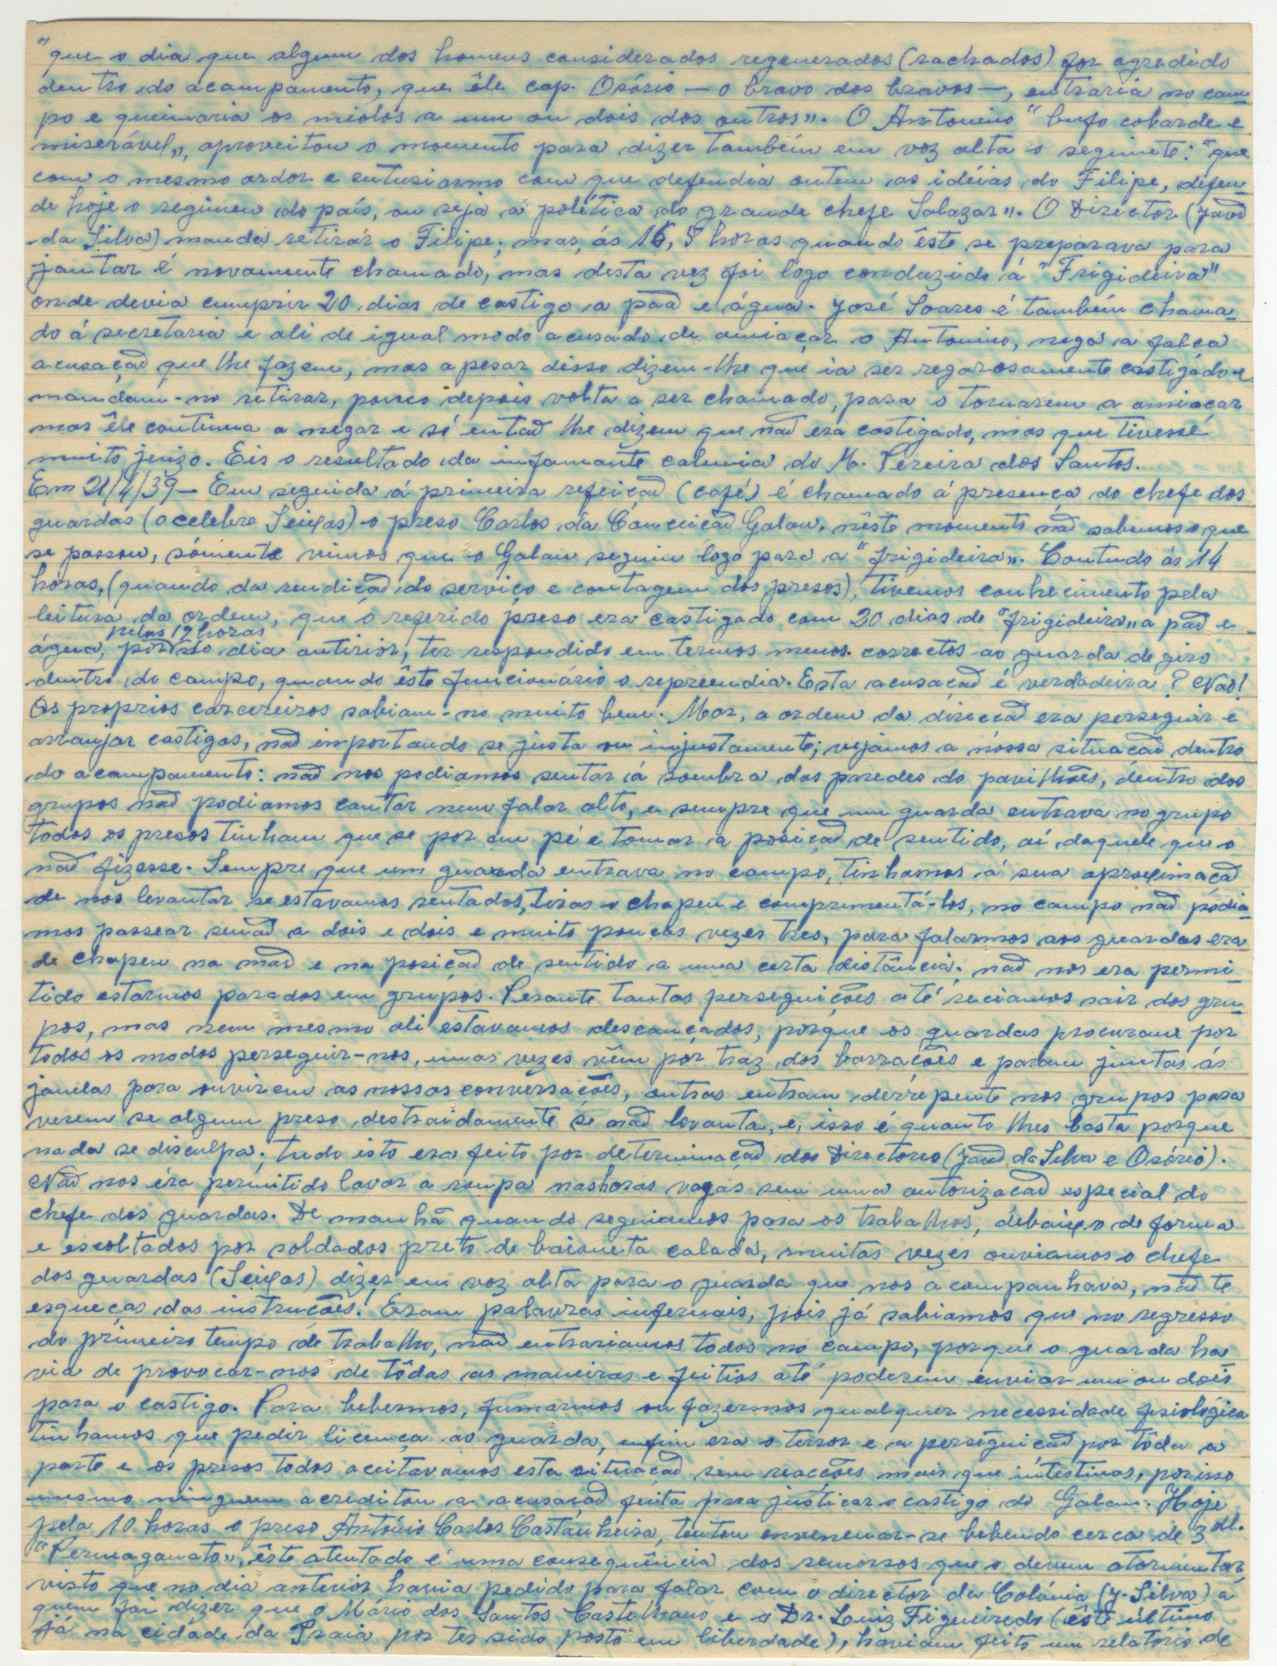 "que o dia que algum dos homens considerados regenerados (rachados) for agredido
dentro do acampamento, que êle cap. Osório — o bravo dos bravos —, entraria no cam-
po e queimaria os miolos a um ou dois dos outros". O Antonino "bufo cobarde e
miserável", aproveitou o momento para dizer também em voz alta o seguinte: "que
com o mesmo ardor e entusiasmo com que defendia ontem as idéias do Filipe, defen-
de hoje o regimen do país, ou seja a política do grande chefe Salazar". O Director (João
da Silva) manda retirar o Filipe, mas, ás 16,5 horas quando êste se preparava para
jantar é novamente chamado, mas desta vez foi logo conduzido á "Frigideira"
onde devia cumprir 20 dias de castigo a pão e água. José Soares é também chama-
do á secretaria e ali de igual modo acusado de amiaçar o Antonino, nega a falça
acusação que lhe fazem, mas apesar disso dizem-lhe que ia ser regorosamente castigádo e
mandam-no retirar, pouco depois volta a ser chamado, para o tornarem a amiaçar
mas êle continua a negar e só então lhe dizem que não era castigado, mas que tivesse
muito juizo. Eis o resultado da infamante calunia do M. Pereira dos Santos.
Em 21/4/39 — Em seguida á primeira refeição (café) é chamado á presença do chefe dos
guardas (o celebre Seixas) o preso Carlos da Conceição Galan, nêste momento não sabemos o que
se passou, sómente vimos que o Galan seguiu logo para a "frigideira". Contudo ás 14
horas, (quando da rendição do serviço e contagem dos presos), tivemos conhecimento pela
leitura da ordem, que o referido preso era castigado com 20 dias de "frigideira" a pão e
pelas 19 horas
água, por no dia antirior, ter respondido em termos menos correctos ao guarda de giro
dentro do campo, quando êste funcionário o repreendia. Esta acusação é verdadeira? Não!
Os proprios carcereiros sabiam-no muito bem. Mas, a ordem da direcção era perseguir e
arranjar castigos, não importando se justa ou injustamente; vejamos a nossa situação dentro
do acampamento: não nos podiamos sentar á sombra das paredes do pavilhões, dentro dos
grupos não podiamos cantar nem falar alto, e sempre que um guarda entrava no grupo
todos os presos tinham que se por em pé e tomar a posição de sentido, ai daquele que o
não fizesse. Sempre que um guarda entrava no campo, tinhamos á sua aproximação
de nos levantar se estavamos sentados, tirar o chapeu e comprimentá-los, no campo não pódia-
mos passear senão a dois e dois e muito poucas vezes tres, para falarmos aos guardas era
de chapeu na mão e na posição de sentido a uma certa distância; não nos era permi-
tido estarmos parados em grupos. Perante tantas perseguições até reciamos sair dos gru-
pos, mas nem mesmo ali estavamos descançados, porque os guardas procuram por
todos os modos perseguir-nos, umas vezes vêm por traz dos barracões e param juntas ás
janelas para ouvirem as nossas conversações, outras entram derrepente nos grupos para
verem se algum preso destraidamente se não levanta, e, isso é quanto lhes basta porque
nada se disculpa; tudo isto era feito por determinação dos Directores (João da Silva e Osório).
Não nos éra permitido lavar a roupa nas horas vagas sem uma autorização especial do
chefe dos guardas. De manhã quando seguiamos para os trabalhos, debaixo de forma
e escoltados por soldados preto de baioneta calada, muitas vezes ouviamos o chefe
dos guardas (Seixas) dizer em voz alta para o guarda que nos acompanhava, não te
esqueças das instrucões. Eram palavras infernais, pois já sabiamos que no regresso
do primeiro tempo de trabalho, não entrariamos todos no campo, porque o guarda ha-
via de provocar-nos de tôdas as maneiras e feitios até poderem enviar um ou dois
para o castigo. Para bebermos, fumarmos ou fazermos qualquer necessidade fisiológica
tinhamos que pedir licença ao guarda, enfim era o terror e a perseguição por tôda a
parte e os presos todos aceitavamos esta situação sem reacções mais que intestinas, por isso
mesmo ninguem acreditou a acusação feita para justiçar o castigo do Galan. Hoje
pela 10 horas o preso António Carlos Castanheira, tentou envenenar-se bebendo cerca de 3 dl.
"Permaganato", êste atentado é uma consequência dos remorsos que o devem atormentar,
visto que no dia anterior havia pedido para falar com o director da Colónia (J. Silva) a
quem foi dizer que o Mário dos Santos Castelhano e o Dr. Luiz Figueiredo (êste ultimo
já na cidade da Praia por ter sido posto em liberdade), haviam feito um relatório de